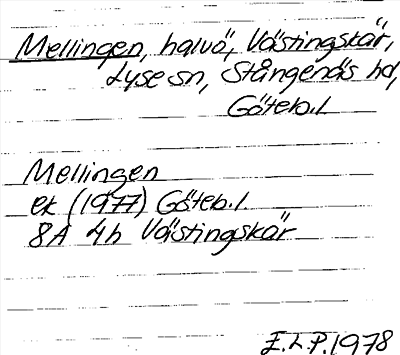 Mellingen, halvö, Västingskär,
Lyse sn, Stångenäs hd,
Göteb.l.
Mellingen
ek (1977) Göteb.l.
8A 4h Västingskär
E.L.P.1978